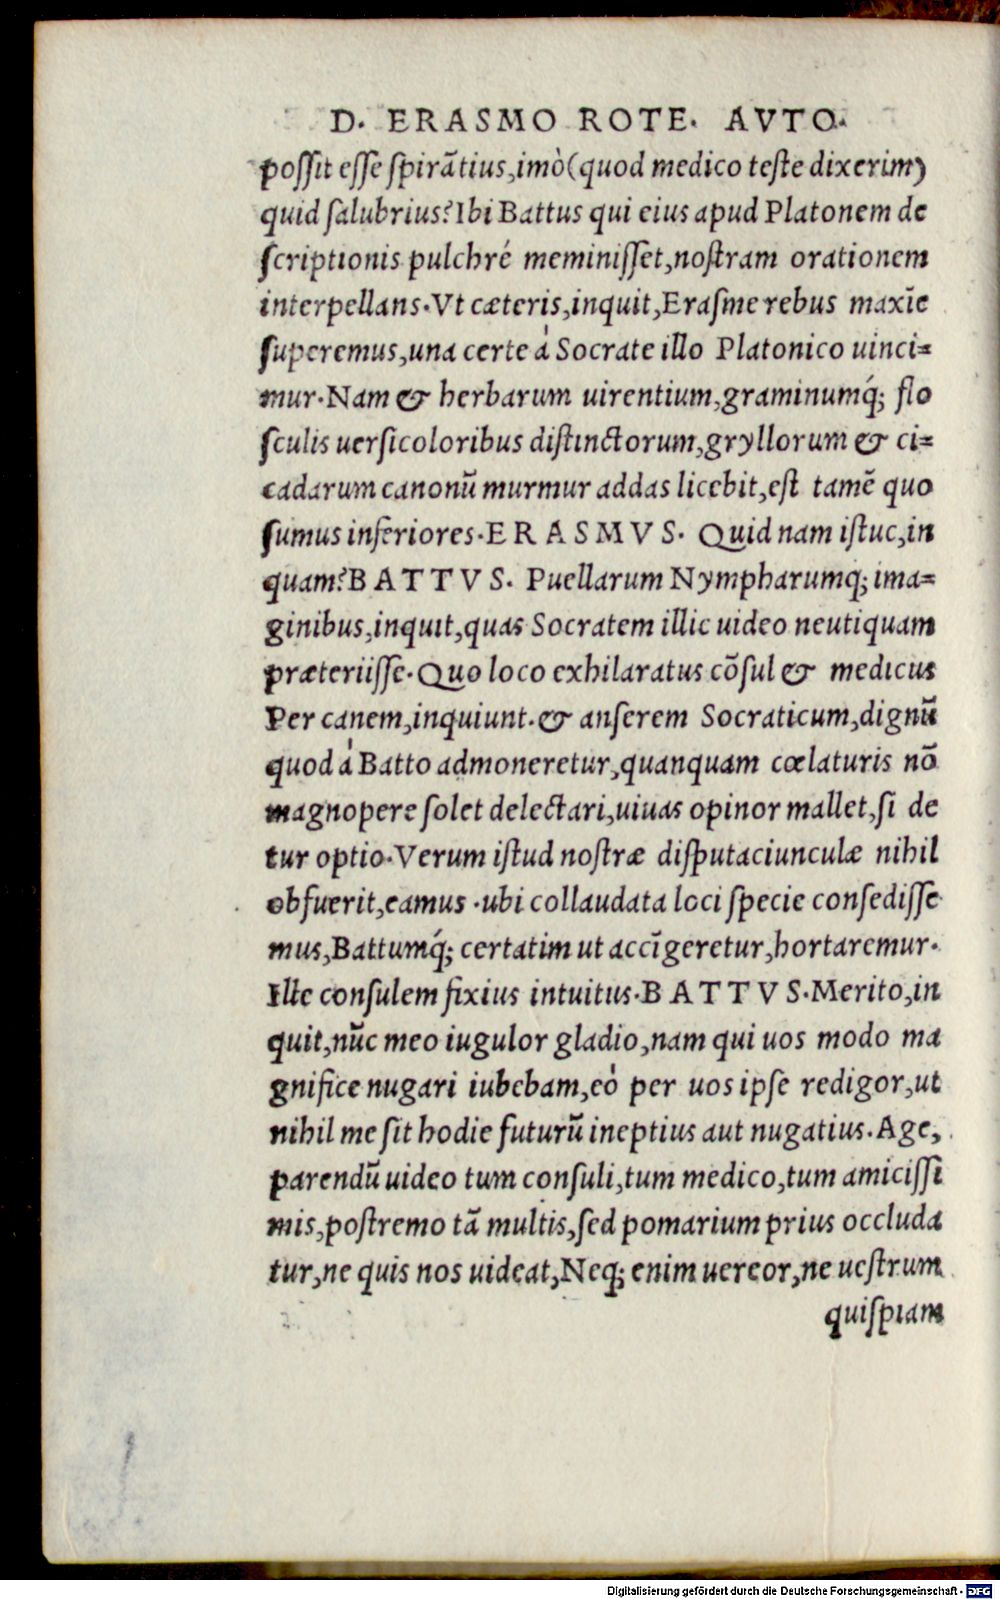 D. ERASMO ROTE. AVTO.
poſſit eſſe ſpirãtius,imò(quod medico teſte dixerim)
quid ſalubrius?Ibi Battus qui eius apud Platonem de
ſcriptionis pulchré meminiſſet,noſtram orationem
interpellans.Vt cæteris,inquit,Eraſme rebus maxĩe
ſuperemus,una certe á Socrate illo Platonico uinci=
mur.Nam & herbarum uirentium,graminumq́; flo
ſculis uerſicoloribus diſtinctorum,gryllorum & ci=
cadarum canonũ murmur addas licebit,eſt tamẽ quo
ſumus inferiores.ERASMVS. Quid nam iſtuc,in
quam?BATTVS. Puellarum Nympharumq; ima=
ginibus,inquit,quas Socratem illic uideo neutiquam
præteriiſſe.Quo loco exhilaratus cõſul & medicus
Per canem,inquiunt.& anſerem Socraticum,dignũ
quod á Batto admoneretur,quanquam cœlaturis nõ
magnopere ſolet delectari,uiuas opinor mallet,ſi de
tur optio.Verum iſtud noſtræ diſputaciunculæ nihil
obfuerit,eamus .ubi collaudata loci ſpecie conſediſſe
mus,Battumq́; certatim ut accĩgeretur,hortaremur.
Ille conſulem fixius intuitus.BATTVS.Merito,in
quit,nũc meo iugulor gladio,nam qui uos modo ma
gnifice nugari iubebam,eó per uos ipſe redigor,ut
nihil me ſit hodie futurũ ineptius aut nugatius.Age,
parendũ uideo tum conſuli,tum medico,tum amiciſſi
mis,poſtremo tã multis,ſed pomarium prius occluda
tur,ne quis nos uideat,Neq; enim uereor,ne ueſtrum
quiſpiam
Digitalisierung gefördert durch die Deutsche Forschungsgemeinschaft - DFG